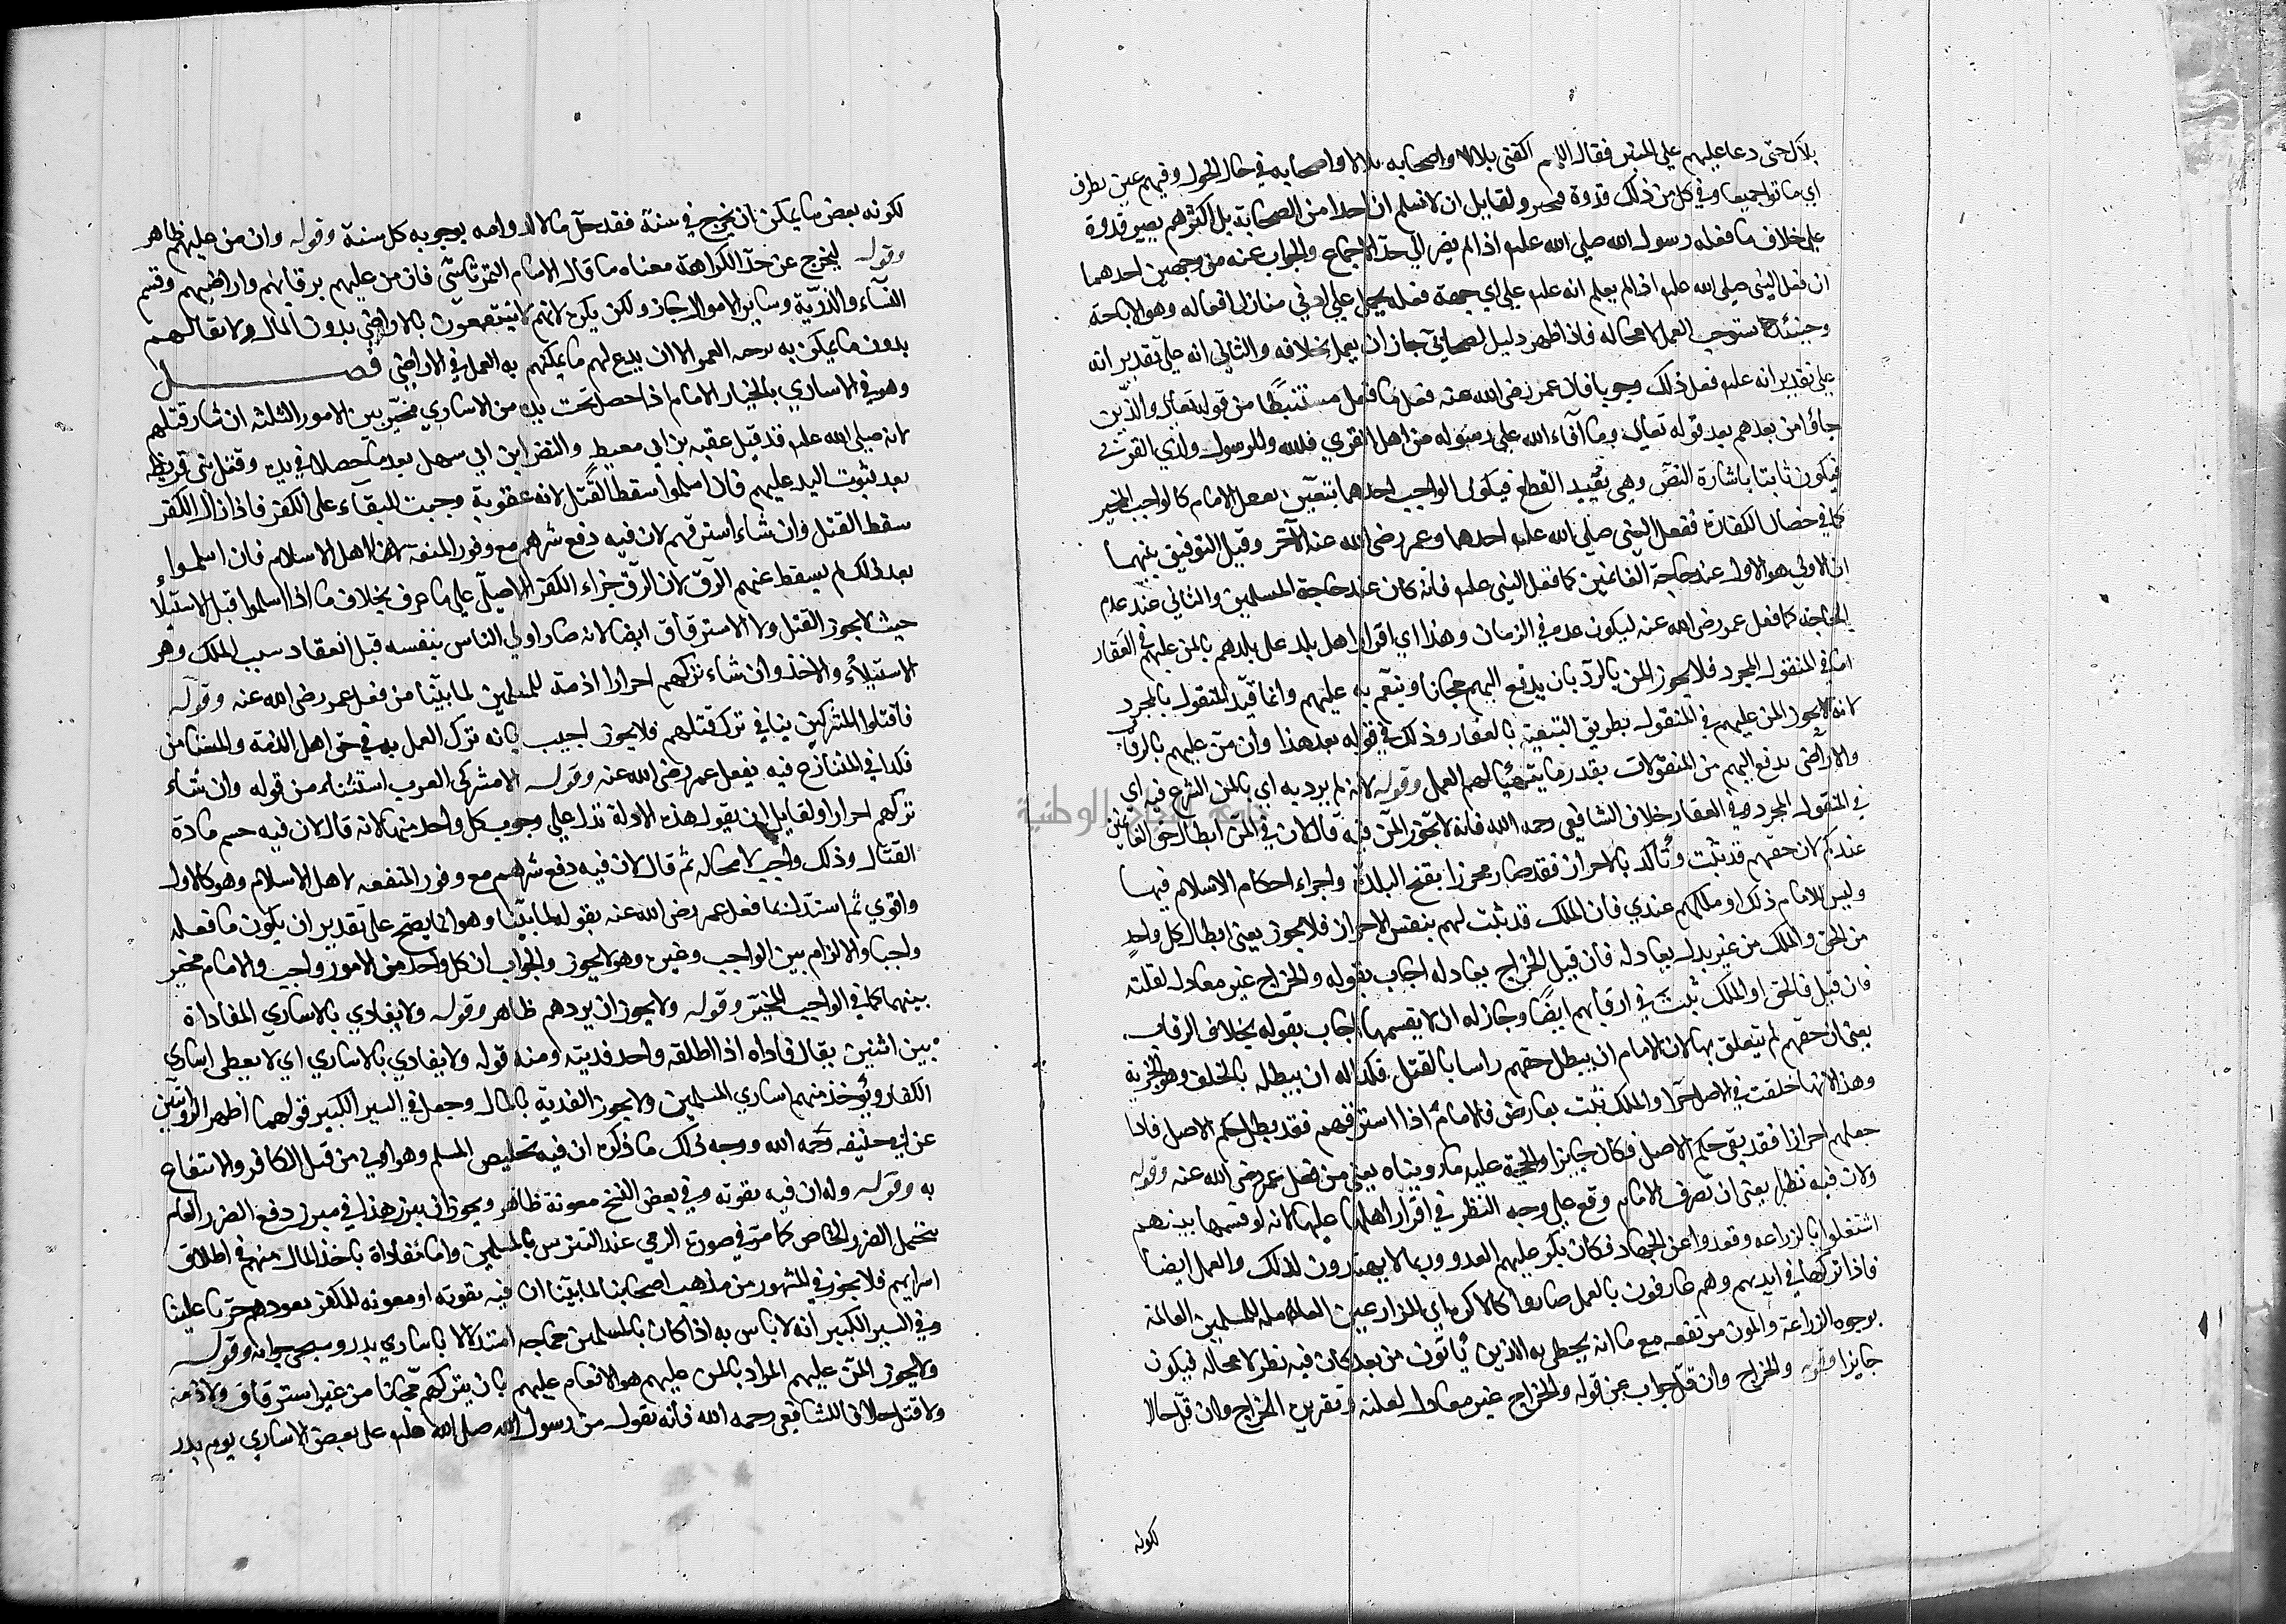 بلال حتى دعا عليهم على المنبر فقال اللهم اكفنى بلالا واصحابه بلالا واصحابه في حال الحول وفيهم عين تطرف
اي ماتوا جميعا وفي كل من ذلك قدوة فيتخير ولقايل ان لا نسلم ان احدا من الصحابة بل اكثرهم يصير قدوة
على خلاف ما فعله رسول الله صلى الله عليه اذا لم يصر الى حد الاجماع والجواب عنه من وجهين احدهما
ان فعل النبى صلى الله عليه اذا لم يعلم انه عليه على اي جهة فعله يحمل على ادنى منازل افعاله وهو الاباحة
وحينئذ لا يستوجب العمل لا محالة فاذا ظهر دليل لصحابي جاز ان يعمل بخلافه والثاني انه على تقدير انه
على تقدير انه عليه فعل ذلك وجوبا فان عمر رضى الله عنه فعل ما فعل مستنبطا من قوله تعالى والذين
جاؤا من بعدهم بعد قوله تعالى وما آفاء الله على رسوله من اهل القرى فلله وللرسول ولذي القربى
فيكون ثابتا باشارة النص وهي تفيد القطع فيكون الواجب احدهما يتعين بفعل الامام كالواجب المخير
كما في خصال الكفارة ففعل النبى صلى الله عليه احدهما وعمر رضى الله عنه الآخر وقيل التوفيق بينهما
ان الاولى هو الاول عند حاجة الغانمين كما فعل النبى عليه فانه كان عند حاجة المسلمين والثاني عند عدم
الحاجة كما فعل عمر رضى الله عنه ليكون عدة في الزمان وهذا اي اقرار اهل بلد على بلدهم بالمن عليهم في العقار
اما في المنقول المجرد فلا يجوز المن بالرد بان يدفع اليهم مجانا وينعم به عليهم وانما قيد المنقول بالمجرد
لانه يجوز المن عليهم في المنقول بطريق التبعية بالعقار وذلك في قوله بعد هذا وان من عليهم بالرقاب
والاراضى يدفع اليهم من المنقولات بقدر ما يتهيا لهم العمل وقوله لانه لم يرد به اي بالمن الشرع فيه اي
في المنقول المجرد وفي العقار خلاف الشافعى رحمه الله فانه لا يجوز المن فيه قال لان في المن ابطال حق الغانمين
عندكم لان حقهم قد ثبت وتأكد بالاحراز فقد صار محرزا بفتح البلدة واجراء احكام الاسلام فيها
وليس للامام ذلك او ملكهم عندي فان الملك قد ثبت لهم بنفس الاحراز فلا يجوز يعنى ابطال كل واحد
من الحق والملك من غير بدل يعادله فان قيل الخراج يعادله اجاب بقوله والخراج غير معادل لقلته
فان قيل فالحق او الملك ثبت في ارقابهم ايضا وجاز له ان لا يقسمها اجاب بقوله بخلاف الرقاب
يعنى ان حقهم لم يتعلق بها لان للامام ان يبطل حقهم راسا بالقتل فكذا له ان يبطله بالخلف وهو الجزية
وهذا لانها خلقت في الاصل احرارا والملك ثبت بعارض فالامام اذا استرقهم فقد بطل حكم الاصل فاذا
جعلهم احرارا فقد بقي حكم الاصل فكان جايزا والحجة عليه ما رويناه يعنى من فعل عمر رضى الله عنه وقوله
ولان فيه نظرا يعنى ان تصرف الامام وقع على وجه النظر في اقرار اهلها عليها لانه لو قسمها بينهم
اشتغلوا بالزراعه وقعدوا عن الجهاد فكان يكر عليهم العدو وربما لا يهتدون لذلك والعمل ايضا
فاذا تركها في ايديهم وهم عارفون بالعمل صاروا كالاكرة اي المزارعين العاملة للمسلمين العالمة
بوجوه الزراعة والمون مرتفعه مع ما انه يحظى به الذين يأتون من بعد كان فيه نظر لا محالة فيكون
جايزا وقوله والخراج وان قل جواب عن قوله والخراج غير معادل لقلته وتقريره الخراج وان قل حالا
لكونه
لكونه بعض ما يمكن ان يخرج في سنة فقد جل مآلا لدوامه بوجوبه كل سنة وقوله وان من عليهم ظاهر
وقوله ليخرج عن حد الكراهة معناه ما قال الامام التمرتاشي فان من عليهم برقابهم واراضيهم وقسم
النسآء والذرية وساير الاموال جاز ولكن يكره لانهم لا ينتفعون بالاراضي بدون المال ولا بقا لهم
بدون ما يمكن به ترجية العمر الا ان يدع لهم ما يمكنهم به العمل في الاراضي فصل
وهو في الاساري بالخيار الامام اذا حصل تحت يده من الاسارى مخير بين الامور الثلثه ان شاء قتلهم
لانه صلى الله عليه قد قتل عقبه بن ابى معيط والنضر ابن ابي سهل بعد ما حصلا في يده وقتل بنى قريظه
بعد ثبوت اليد عليهم فان اسلموا سقط القتل لانه عقوبة وجبت للبقاء على الكفر فاذا زال الكفر
سقط القتل وان شاء استرقهم لان فيه دفع شرهم مع وفور المنفعه لاهل الاسلام فان اسلموا
بعد ذلك لم يسقط عنهم الرق لان الرق جزاء الكفر الاصلى على ما عرف بخلاف ما اذا اسلموا قبل الاستيلاء
حيث لا يجوز القتل ولا الاسترقاق ايضا لانه صار اولى الناس بنفسه قبل انعقاد سبب الملك وهو
الاستيلاء والاخذ وان شاء تركهم احرارا اذمة للمسلمين لما بينا من فعل عمر رضى الله عنه وقوله
فاقتلوا المشركين ينافي ترك قتلهم فلا يجوز اجيب بانه ترك العمل به في حق اهل الذمة والمستامن
فكذا في المتنازع فيه بفعل عمر رضى الله عنه وقوله الا مشركى العرب استثناء من قوله وان شاء
تركهم احرارا ولقايل ان يقول هذه الادلة تدل على وجوب كل واحد منها لانه قال لان فيه حسم مادة
القتال وذلك واجب لا محالة ثم قال لان فيه دفع شرهم مع وفور المنفعه لاهل الاسلام وهو كالاول
واقوى ثم استدل بما فعل عمر رضى الله عنه بقوله لما بينا وهو انما يصح على تقدير ان يكون ما فعله
واجبا والا لزام بين الواجب وغيره وهو لا يجوز والجواب ان كل واحد من الامور واجب والامام مخير
بينهما كما في الواجب المخير وقوله ولا يجوز ان يردهم ظاهر وقوله ولا يفادي بالاسارى المفاداة
بين اثنين يقال فاداه اذا اطلقه واخد فديته ومنه قوله ولا يفادي بالاساري اي لا يعطى اسارى
الكفار ويؤخذ منهم اسارى المسلمين ولا يجوز الفدية بالمال وجعل في السير الكبير قولهما اظهر الروايتين
عن ابي حنيفه رحمه الله ووجه ذلك ما ذكره ان فيه تخليص المسلم وهو اولى من قتل الكافر والانتفاع
به وقوله وله ان فيه تقوته وفي بعض النسخ معونة ظاهر ويجوز ان يبرز هذا في مبرز دفع الضرر العام
بتحمل الضرر الخاص كما مر في صورة الرمي عند التترس بالمسلمين واما مفاداة باخذ المال منهم في اطلاق
اسرايهم فلا يجوز في المشهور من مذهب اصحابنا لما بينا ان فيه تقوته او معونه للكفر بعودهم حربا علينا
وفي السير الكبير انه لا باس به اذا كان بالمسلمين حاجه استدلالا باسارى بدر وسيجي جوابه وقوله
ولا يجوز المن عليهم المراد بالمن عليهم هو الانعام عليهم بان يتركهم مجانا من غير استرقاق ولا ذمة
ولا قتل خلافا للشافعى رحمه الله فانه يقول من رسول الله صلى الله عليه على بعض الاسارى يوم بدر